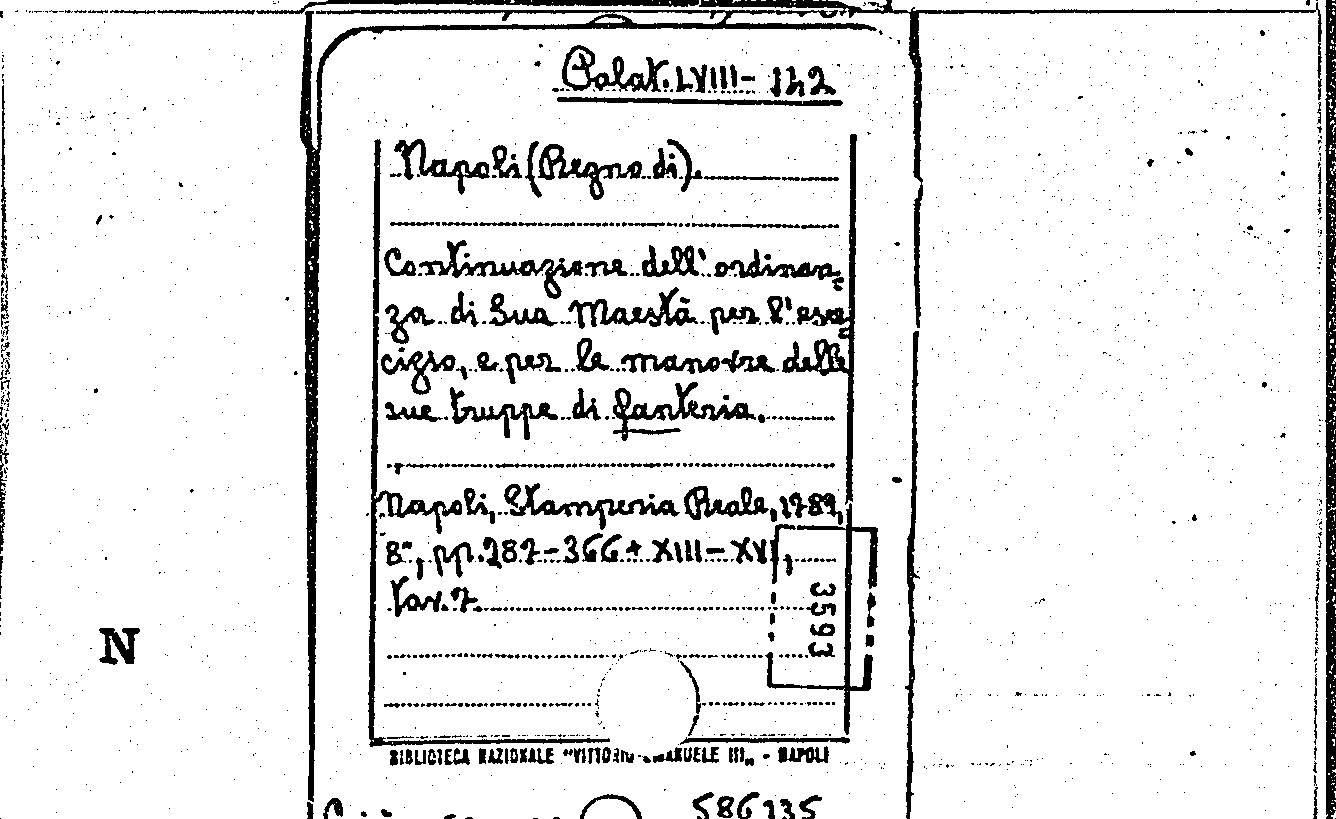 Palat. LVIII-142
Napoli (Regno di).
Continuazione dell'ordinan-
za di Sua Maestà per l'eser-
cizio, e per le manovre delle
sue truppe di fanteria.
Napoli, Stamperia Reale, 1789,
8°, pp. 287-366 + XIII-XVI,
tav. 7.
3593
N
BIBLIOTECA NAZIONALE "VITTORIO EMANUELE III" - NAPOLI
586135